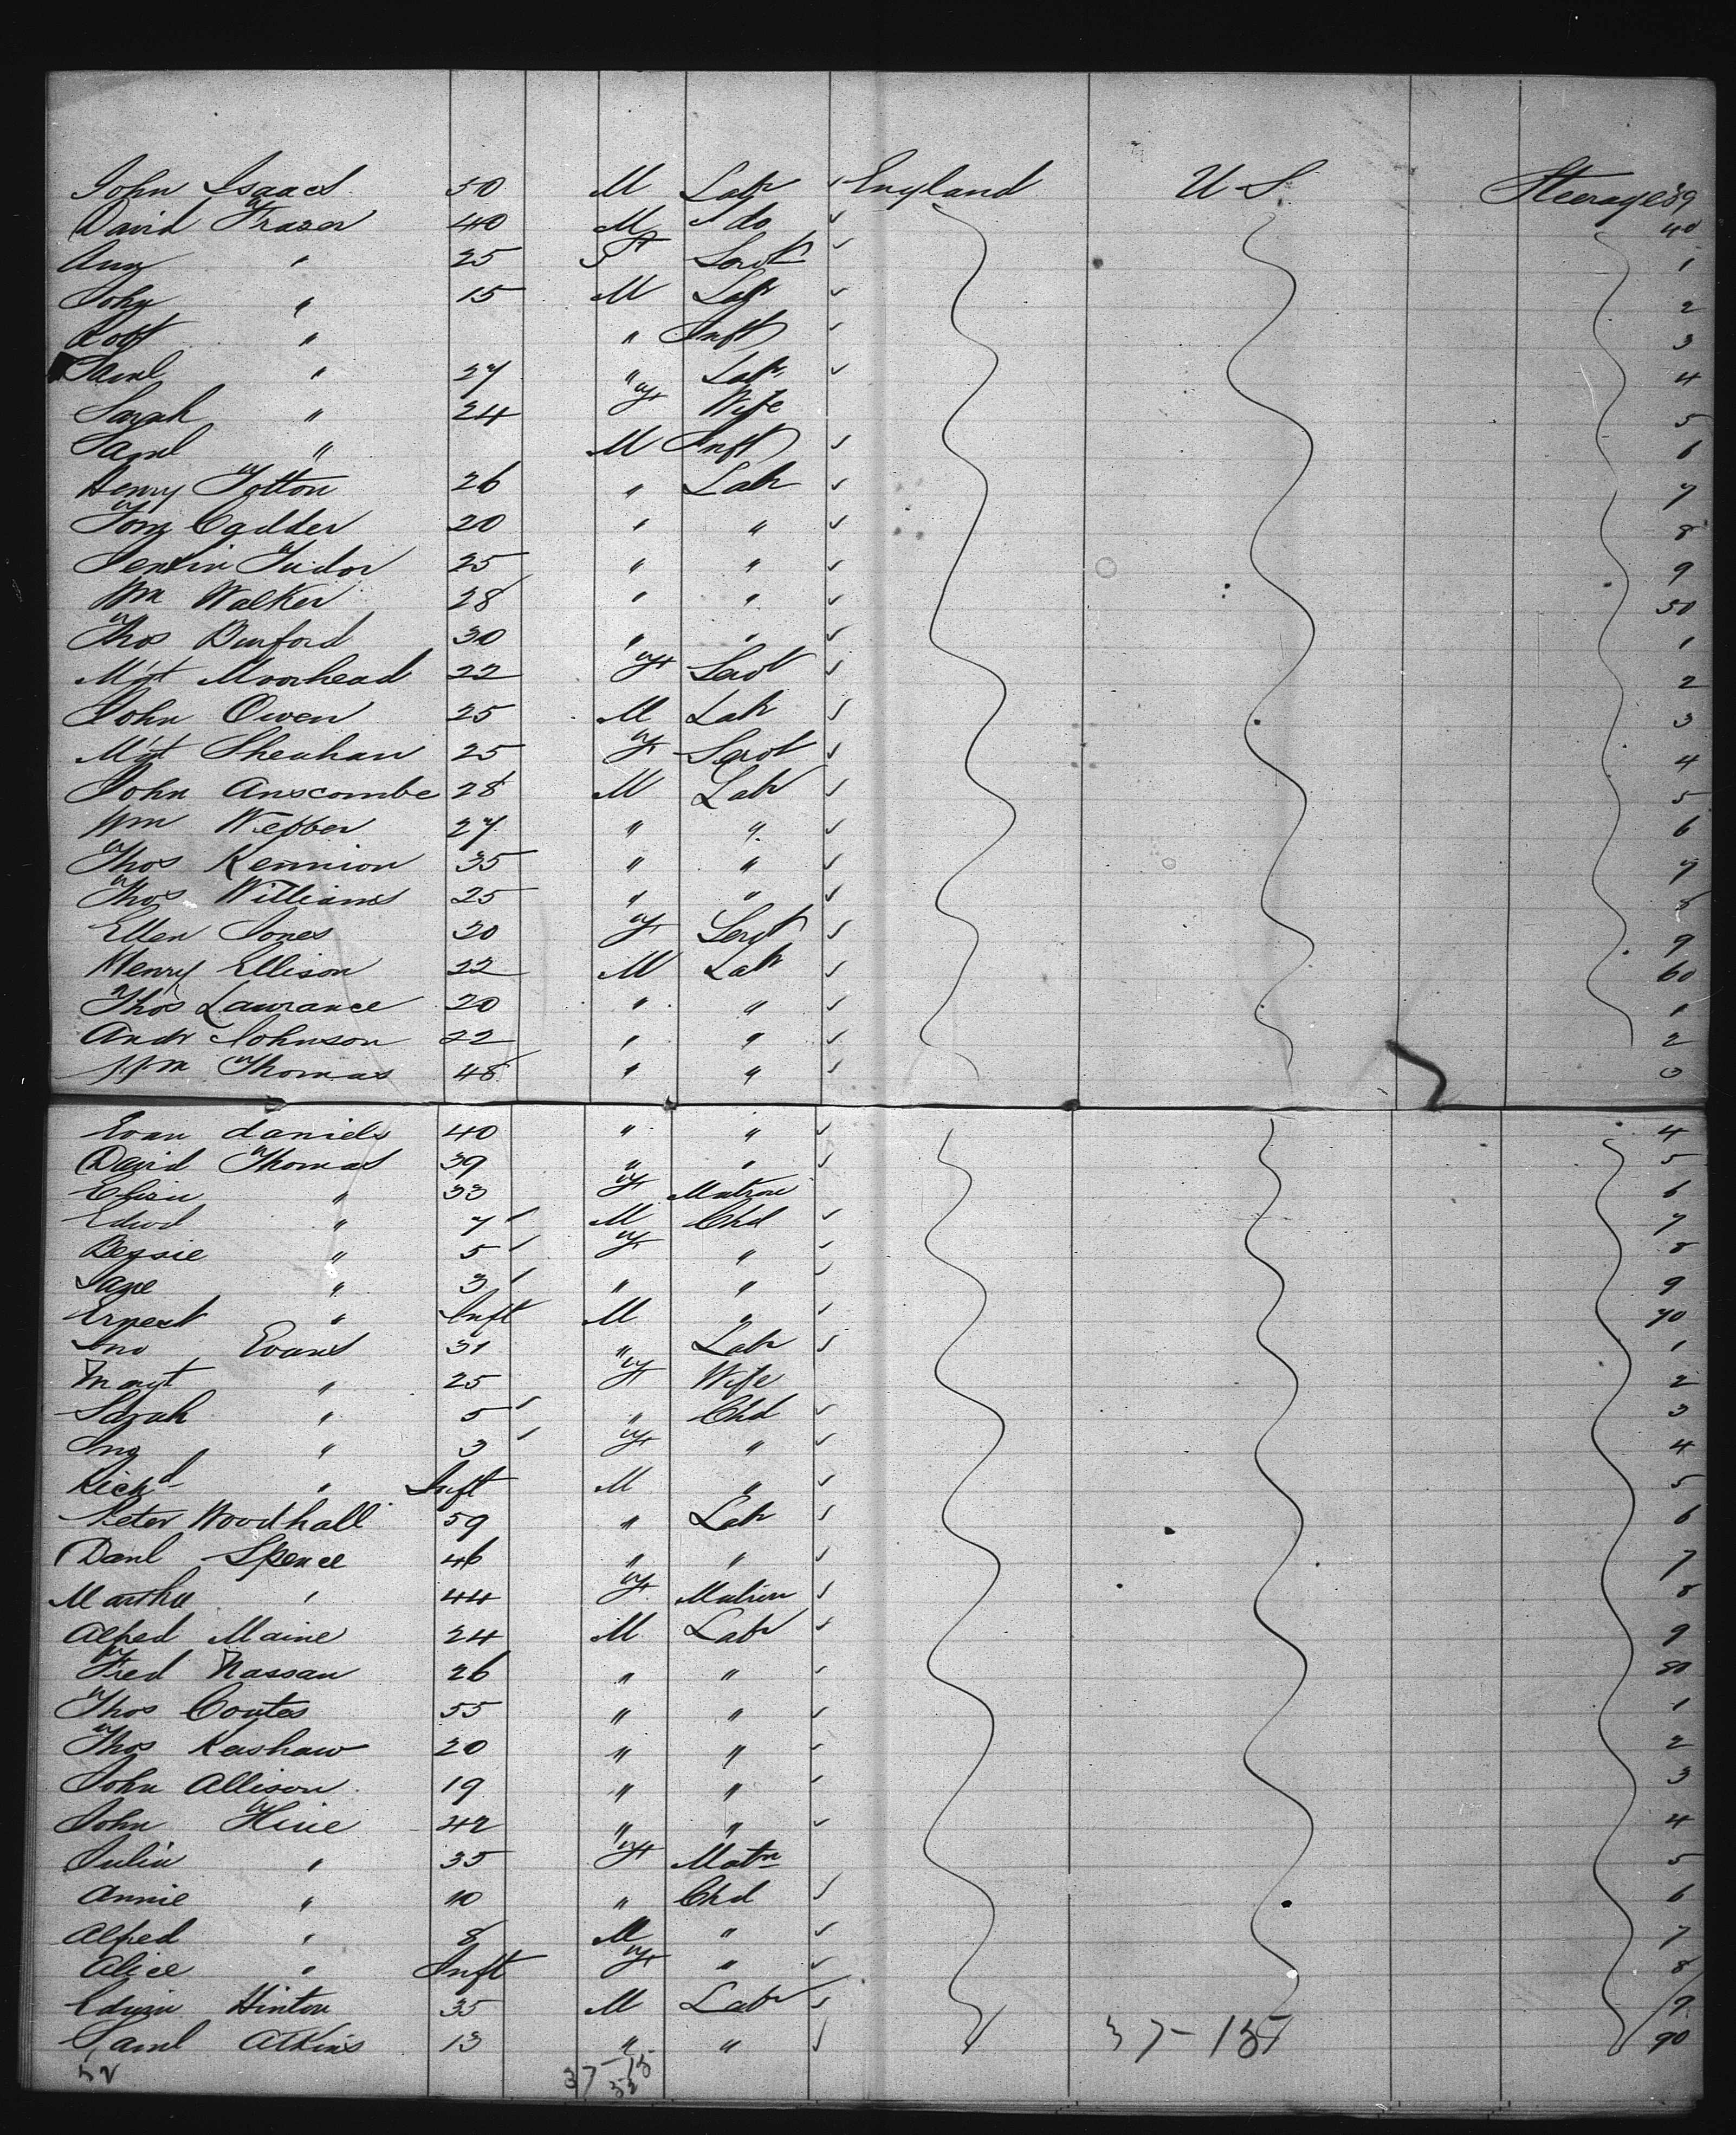 John Isaacs 30 M Labr ✓ England U S. Steerage 39
David Frazer 40 M do ✓ 40
Ann " 25 F Servt ✓ 1
John " 15 M Labr ✓ 2
Robt " " Inft ✓ 3
Saml " 27 " Labr ✓ 4
Sarah " 24 F Wife 5
Saml " M Inft ✓ 6
Henry Totton 26 " Labr ✓ 7
Tom 20 " " ✓ 8
Jenkin Tudor 25 " " ✓ 9
Wm Walker 28 " " ✓ 50
Thos Burford 30 " " ✓ 1
Mgt Moorhead 22 F Servt ✓ 2
John Owen 25 M Labr ✓ 3
Mgt Sheahan 25 F Servt ✓ 4
John Anscombe 28 M Labr ✓ 5
Wm Webber 27 " " ✓ 6
Thos Kennion 35 " " ✓ 7
Thos Williams 25 " " ✓ 8
Ellen Jones 20 F Servt ✓ 9
Henry Ellison 22 M Labr ✓ 60
Thos Lawrance 20 " " ✓ 1
Andw Johnson 22 " " ✓ 2
Wm Thomas 48 " " ✓ 3
Evan daniels 40 " " ✓ 4
David Thomas 39 " " ✓ 5
Eliza " 33 F Matron 6
Edwd " 7 M Chd ✓ 7
Bessie " 5 F " ✓ 8
Jane " 3 " " ✓ 9
Ernest " Inft M " ✓ 70
Jno Evans 31 " Labr ✓ 1
Margt " 25 F Wife 2
Sarah " 5 " Chd ✓ 3
Jno " 3 F " ✓ 4
Richd " Inft M " ✓ 5
Peter Woodhall 59 " Labr ✓ 6
Danl Spence 46 " " ✓ 7
Martha " 44 F Matron ✓ 8
Alfred Maine 24 M Labr ✓ 9
Fred Nassau 26 " " ✓ 80
Thos Coates 55 " " ✓ 1
Thos Kershaw 20 " " ✓ 2
John Allison 19 " " ✓ 3
John Hine 42 " " ✓ 4
Julia " 35 F Matn 5
Annie " 10 " Chd ✓ 6
Alfred " 8 M " ✓ 7
Alice " Inft F " ✓ 8
Edwin Hinton 35 M Labr ✓ 9
Saml Atkins 13 " " ✓ 90
52 37-15 37-15
52